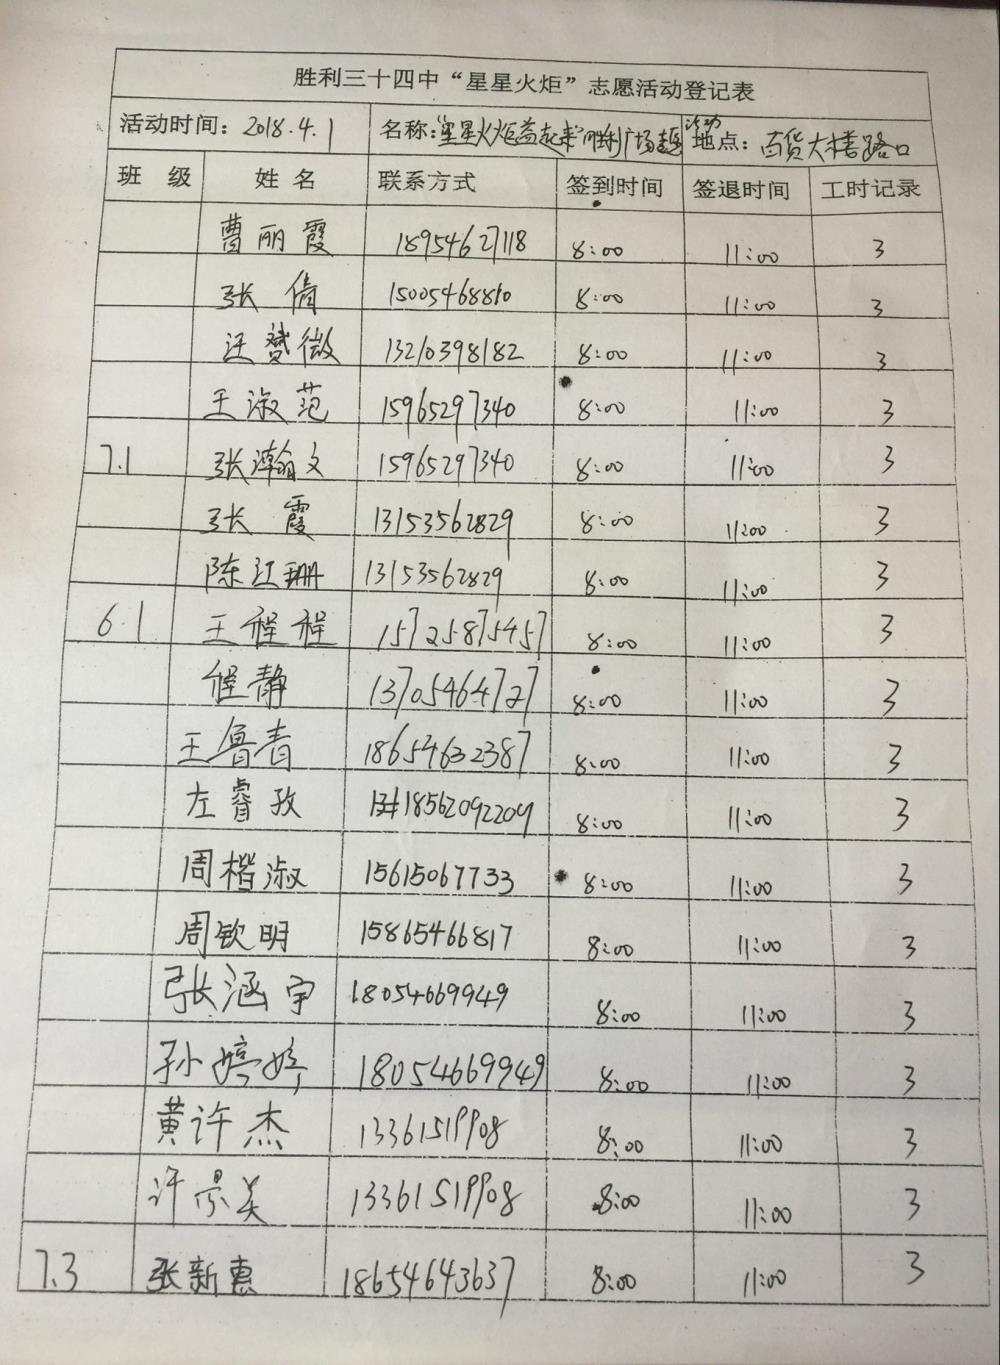 胜利三十四中“星星火炬”志愿活动登记表
活动时间：2018.4.1 名称：“星星火炬益起来”胜利广场 活动地点：百货大楼路口
班 级 姓 名 联系方式 签到时间 签退时间 工时记录
曹丽霞 18954627118 8:00 11:00 3
张倩 15005468810 8:00 11:00 3
汪赟微 13210398182 8:00 11:00 3
王淑范 15965297340 8:00 11:00 3
7.1 张瀚文 15965297340 8:00 11:00 3
张霞 13153562829 8:00 11:00 3
陈江珊 13153562829 8:00 11:00 3
6.1 王程程 15725875457 8:00 11:00 3
程静 13705464727 8:00 11:00 3
王鲁青 18654632387 8:00 11:00 3
左睿孜 18562092209 8:00 11:00 3
周楷淑 15615067733 8:00 11:00 3
周钦明 15865466817 8:00 11:00 3
张涵宇 18054669949 8:00 11:00 3
孙婷婷 18054669949 8:00 11:00 3
黄许杰 13361519908 8:00 11:00 3
许景美 13361519908 8:00 11:00 3
7.3 张新惠 18654643637 8:00 11:00 3